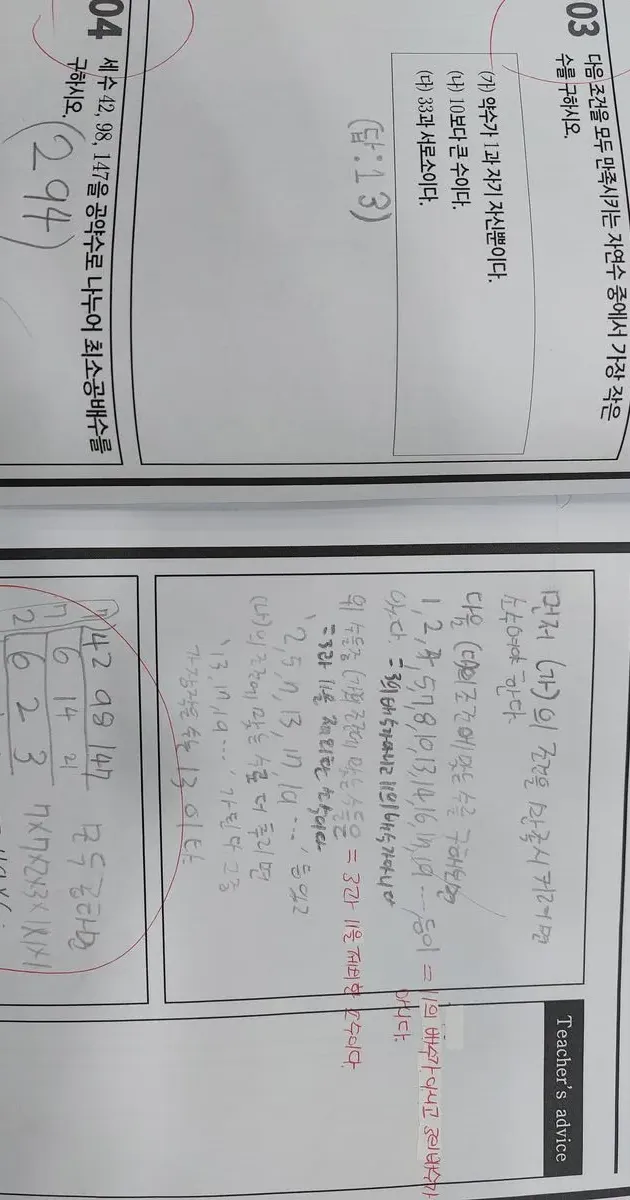 03 다음 조건을 모두 만족시키는 자연수 중에서 가장 작은
수를 구하시오.
(가) 약수가 1과 자기 자신뿐이다.
(나) 10보다 큰 수이다.
(다) 33과 서로소이다.
(답:13)
04 세 수 42, 98, 147을 공약수로 나누어 최소공배수를
구하시오.
(294)
Teacher's advice
먼저 (가)의 조건을 만족시키려면
소수여야 한다.
다음 (다)의 조건에 맞는 수를 구하면
1, 2, 4, 5, 7, 8, 10, 13, 14, 16, 17, 19 … 등이 = 11의 배수가 아니고 3의 배수가
아니다.
있다 = 3의 배수가 아니고 11의 배수가 아니다
위 수들 중 (가)의 조건에 맞는 수들은 = 3과 11을 제외한 소수이다.
= 3과 11을 제외한 소수이다
'2, 5, 7, 13, 17, 19 …' 등 있고
(나)의 조건에 맞는 수를 더 줄이면
'13, 17, 19 …' 가 된다 그 중
가장 작은 수는 13이다.
7 42 98 147 모두 곱하면
7 6 14 21
2 6 2 3 7×7×2×3×1×1×1